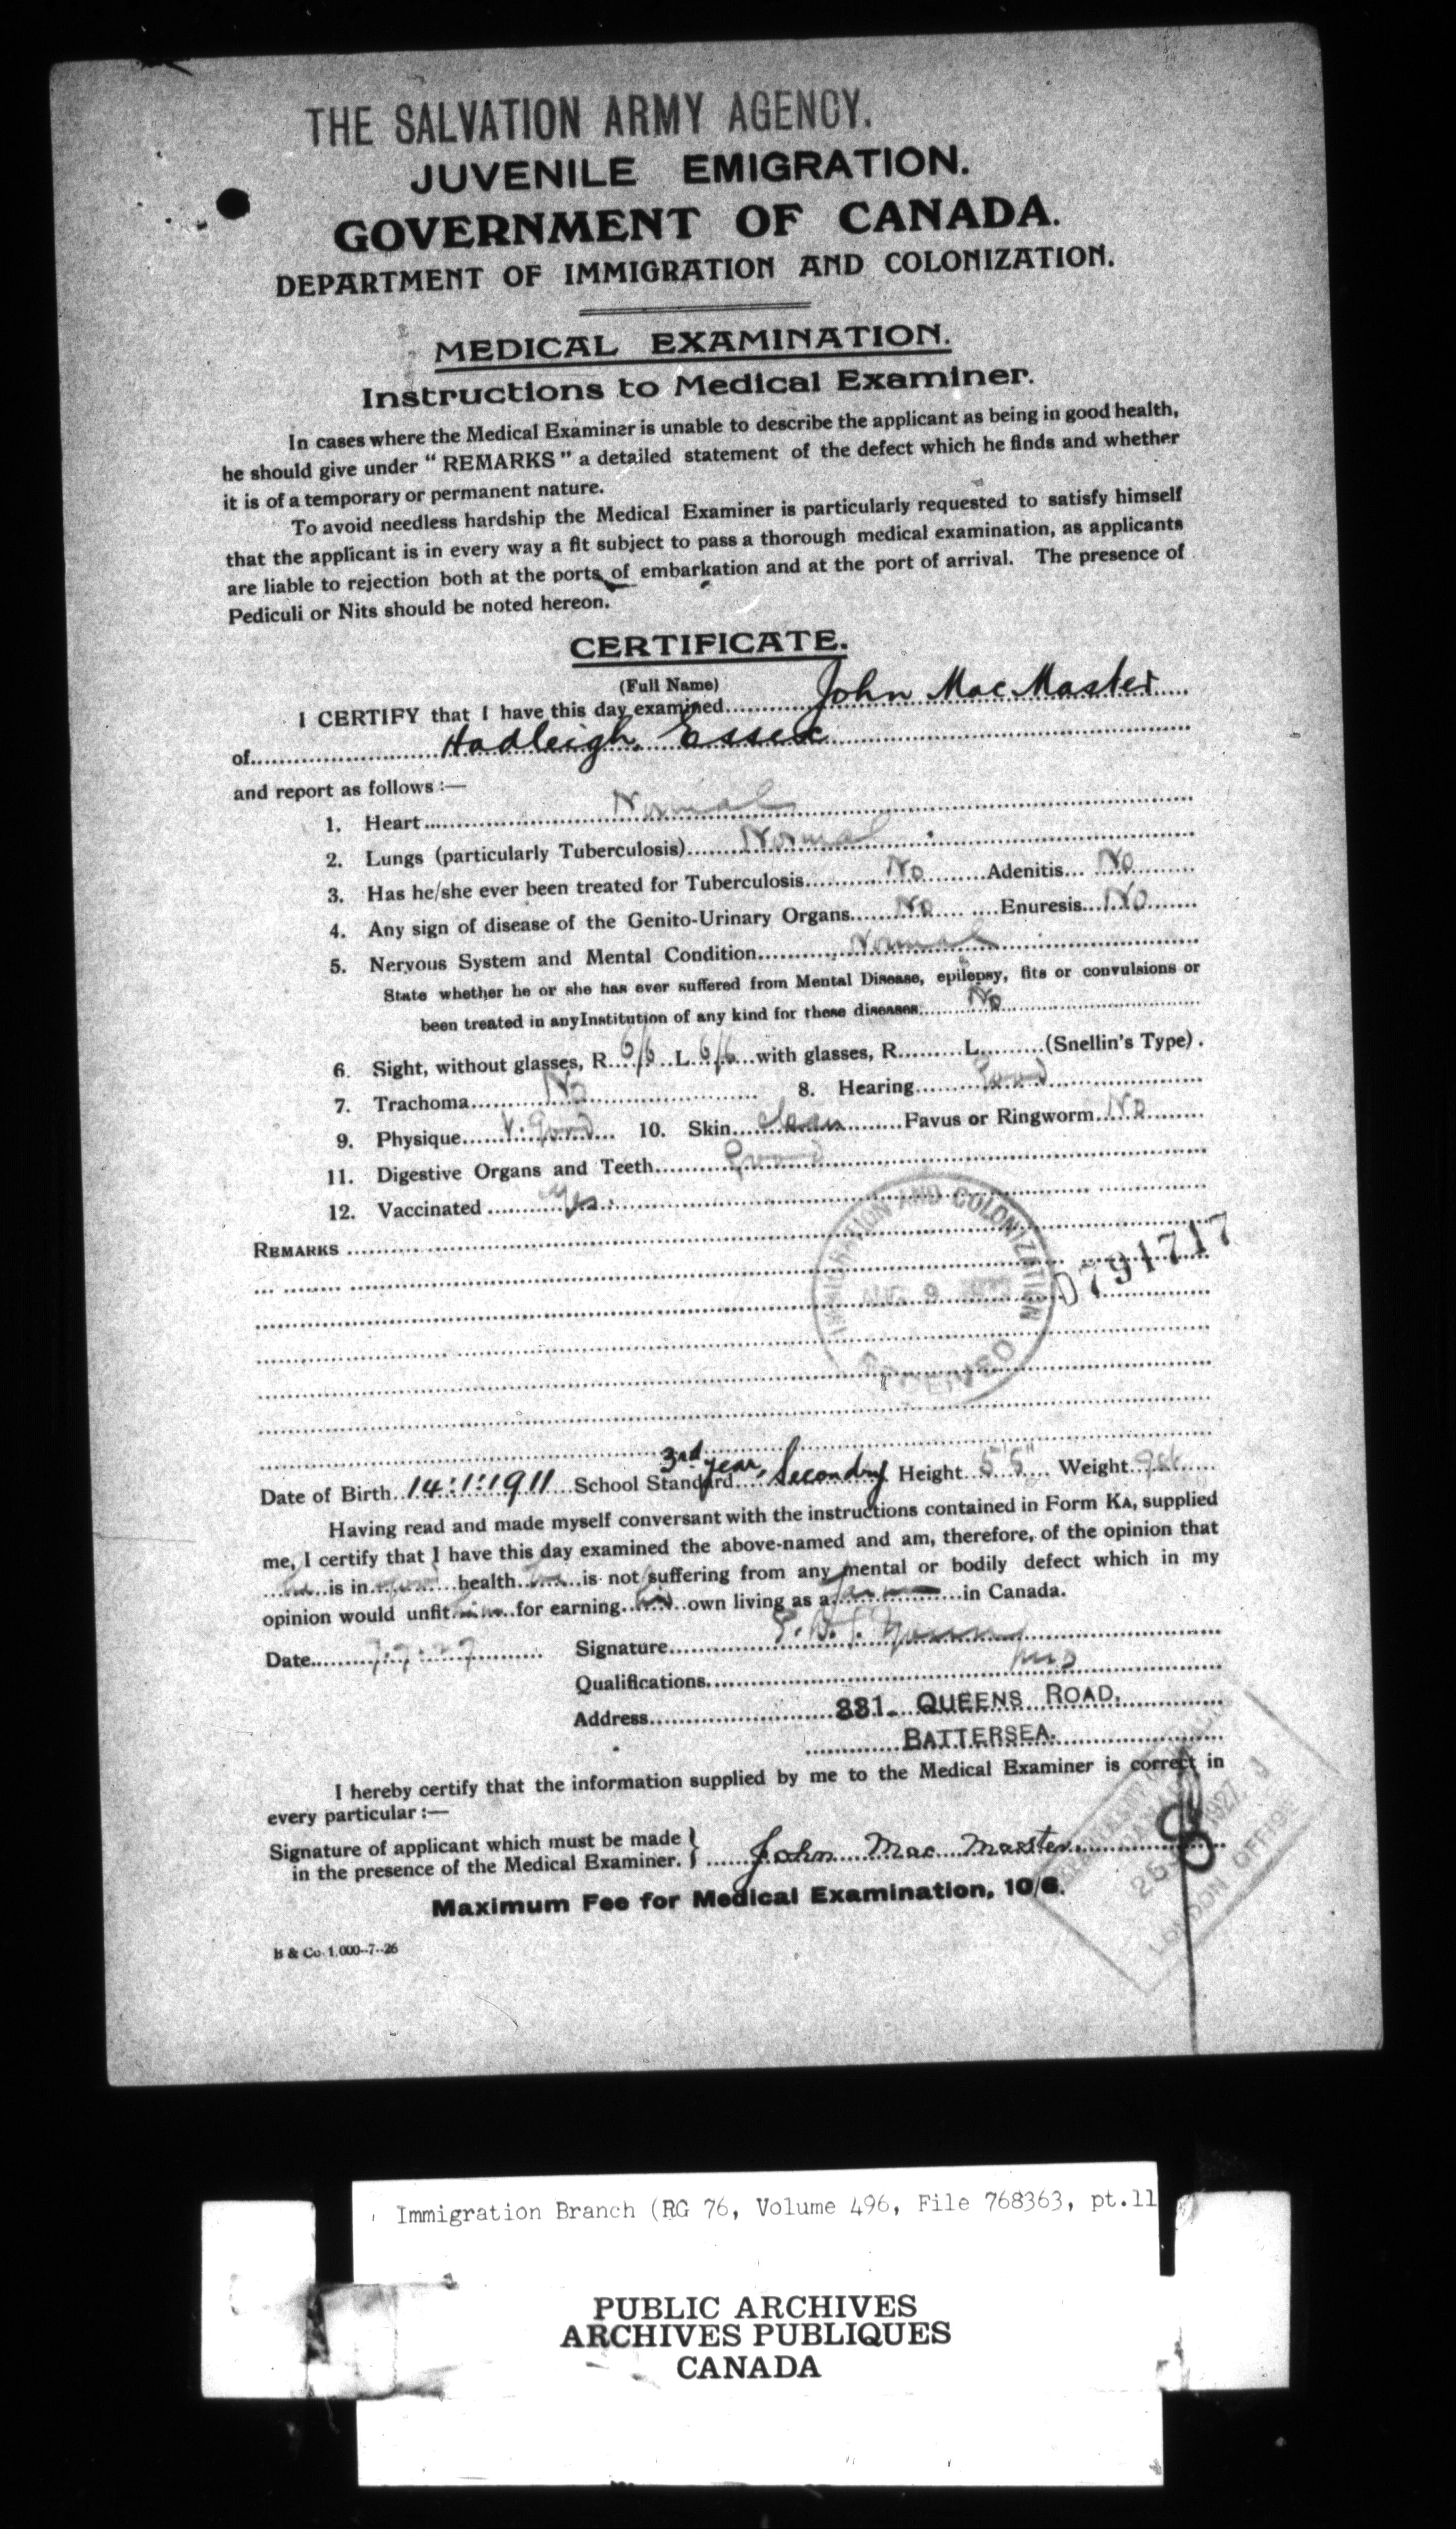 THE SALVATION ARMY AGENCY.
JUVENILE EMIGRATION.
GOVERNMENT OF CANADA.
DEPARTMENT OF IMMIGRATION AND COLONIZATION.
MEDICAL EXAMINATION.
Instructions to Medical Examiner.
In cases where the Medical Examiner is unable to describe the applicant as being in good health,
he should give under "REMARKS" a detailed statement of the defect which he finds and whether
it is of a temporary or permanent nature.
To avoid needless hardship the Medical Examiner is particularly requested to satisfy himself
that the applicant is in every way a fit subject to pass a thorough medical examination, as applicants
are liable to rejection both at the ports of embarkation and at the port of arrival. The presence of
Pediculi or Nits should be noted hereon.
CERTIFICATE.
(Full Name)
I CERTIFY that I have this day examined John Mac Master
of Hadleigh, Essex
and report as follows :—
1. Heart Normal
2. Lungs (particularly Tuberculosis) Normal
3. Has he/she ever been treated for Tuberculosis No Adenitis No
4. Any sign of disease of the Genito-Urinary Organs No Enuresis No
5. Nervous System and Mental Condition Normal
State whether he or she has ever suffered from Mental Disease, epilepsy, fits or convulsions or
been treated in any Institution of any kind for these diseases No
6. Sight, without glasses, R 6/6 L 6/6 with glasses, R L (Snellin's Type).
7. Trachoma No 8. Hearing Good
9. Physique V. Good 10. Skin clean Favus or Ringworm No
11. Digestive Organs and Teeth Good
12. Vaccinated Yes
REMARKS
IMMIGRATION AND COLONIZATION
AUG 9
RECEIVED
0791717
Date of Birth 14:1:1911 School Standard 3rd year Secondry Height 5'5" Weight 9st
Having read and made myself conversant with the instructions contained in Form KA, supplied
me, I certify that I have this day examined the above-named and am, therefore, of the opinion that
he is in good health he is not suffering from any mental or bodily defect which in my
opinion would unfit him for earning his own living as a in Canada.
Date 7.7.27 Signature
Qualifications MD
Address 881 QUEENS ROAD,
BATTERSEA.
I hereby certify that the information supplied by me to the Medical Examiner is correct in
every particular :—
Signature of applicant which must be made
in the presence of the Medical Examiner. } John Mac Master
1927
LONDON OFFICE
Maximum Fee for Medical Examination, 10/6.
B & Co 1,000--7--26
Immigration Branch (RG 76, Volume 496, File 768363, pt.11
PUBLIC ARCHIVES
ARCHIVES PUBLIQUES
CANADA